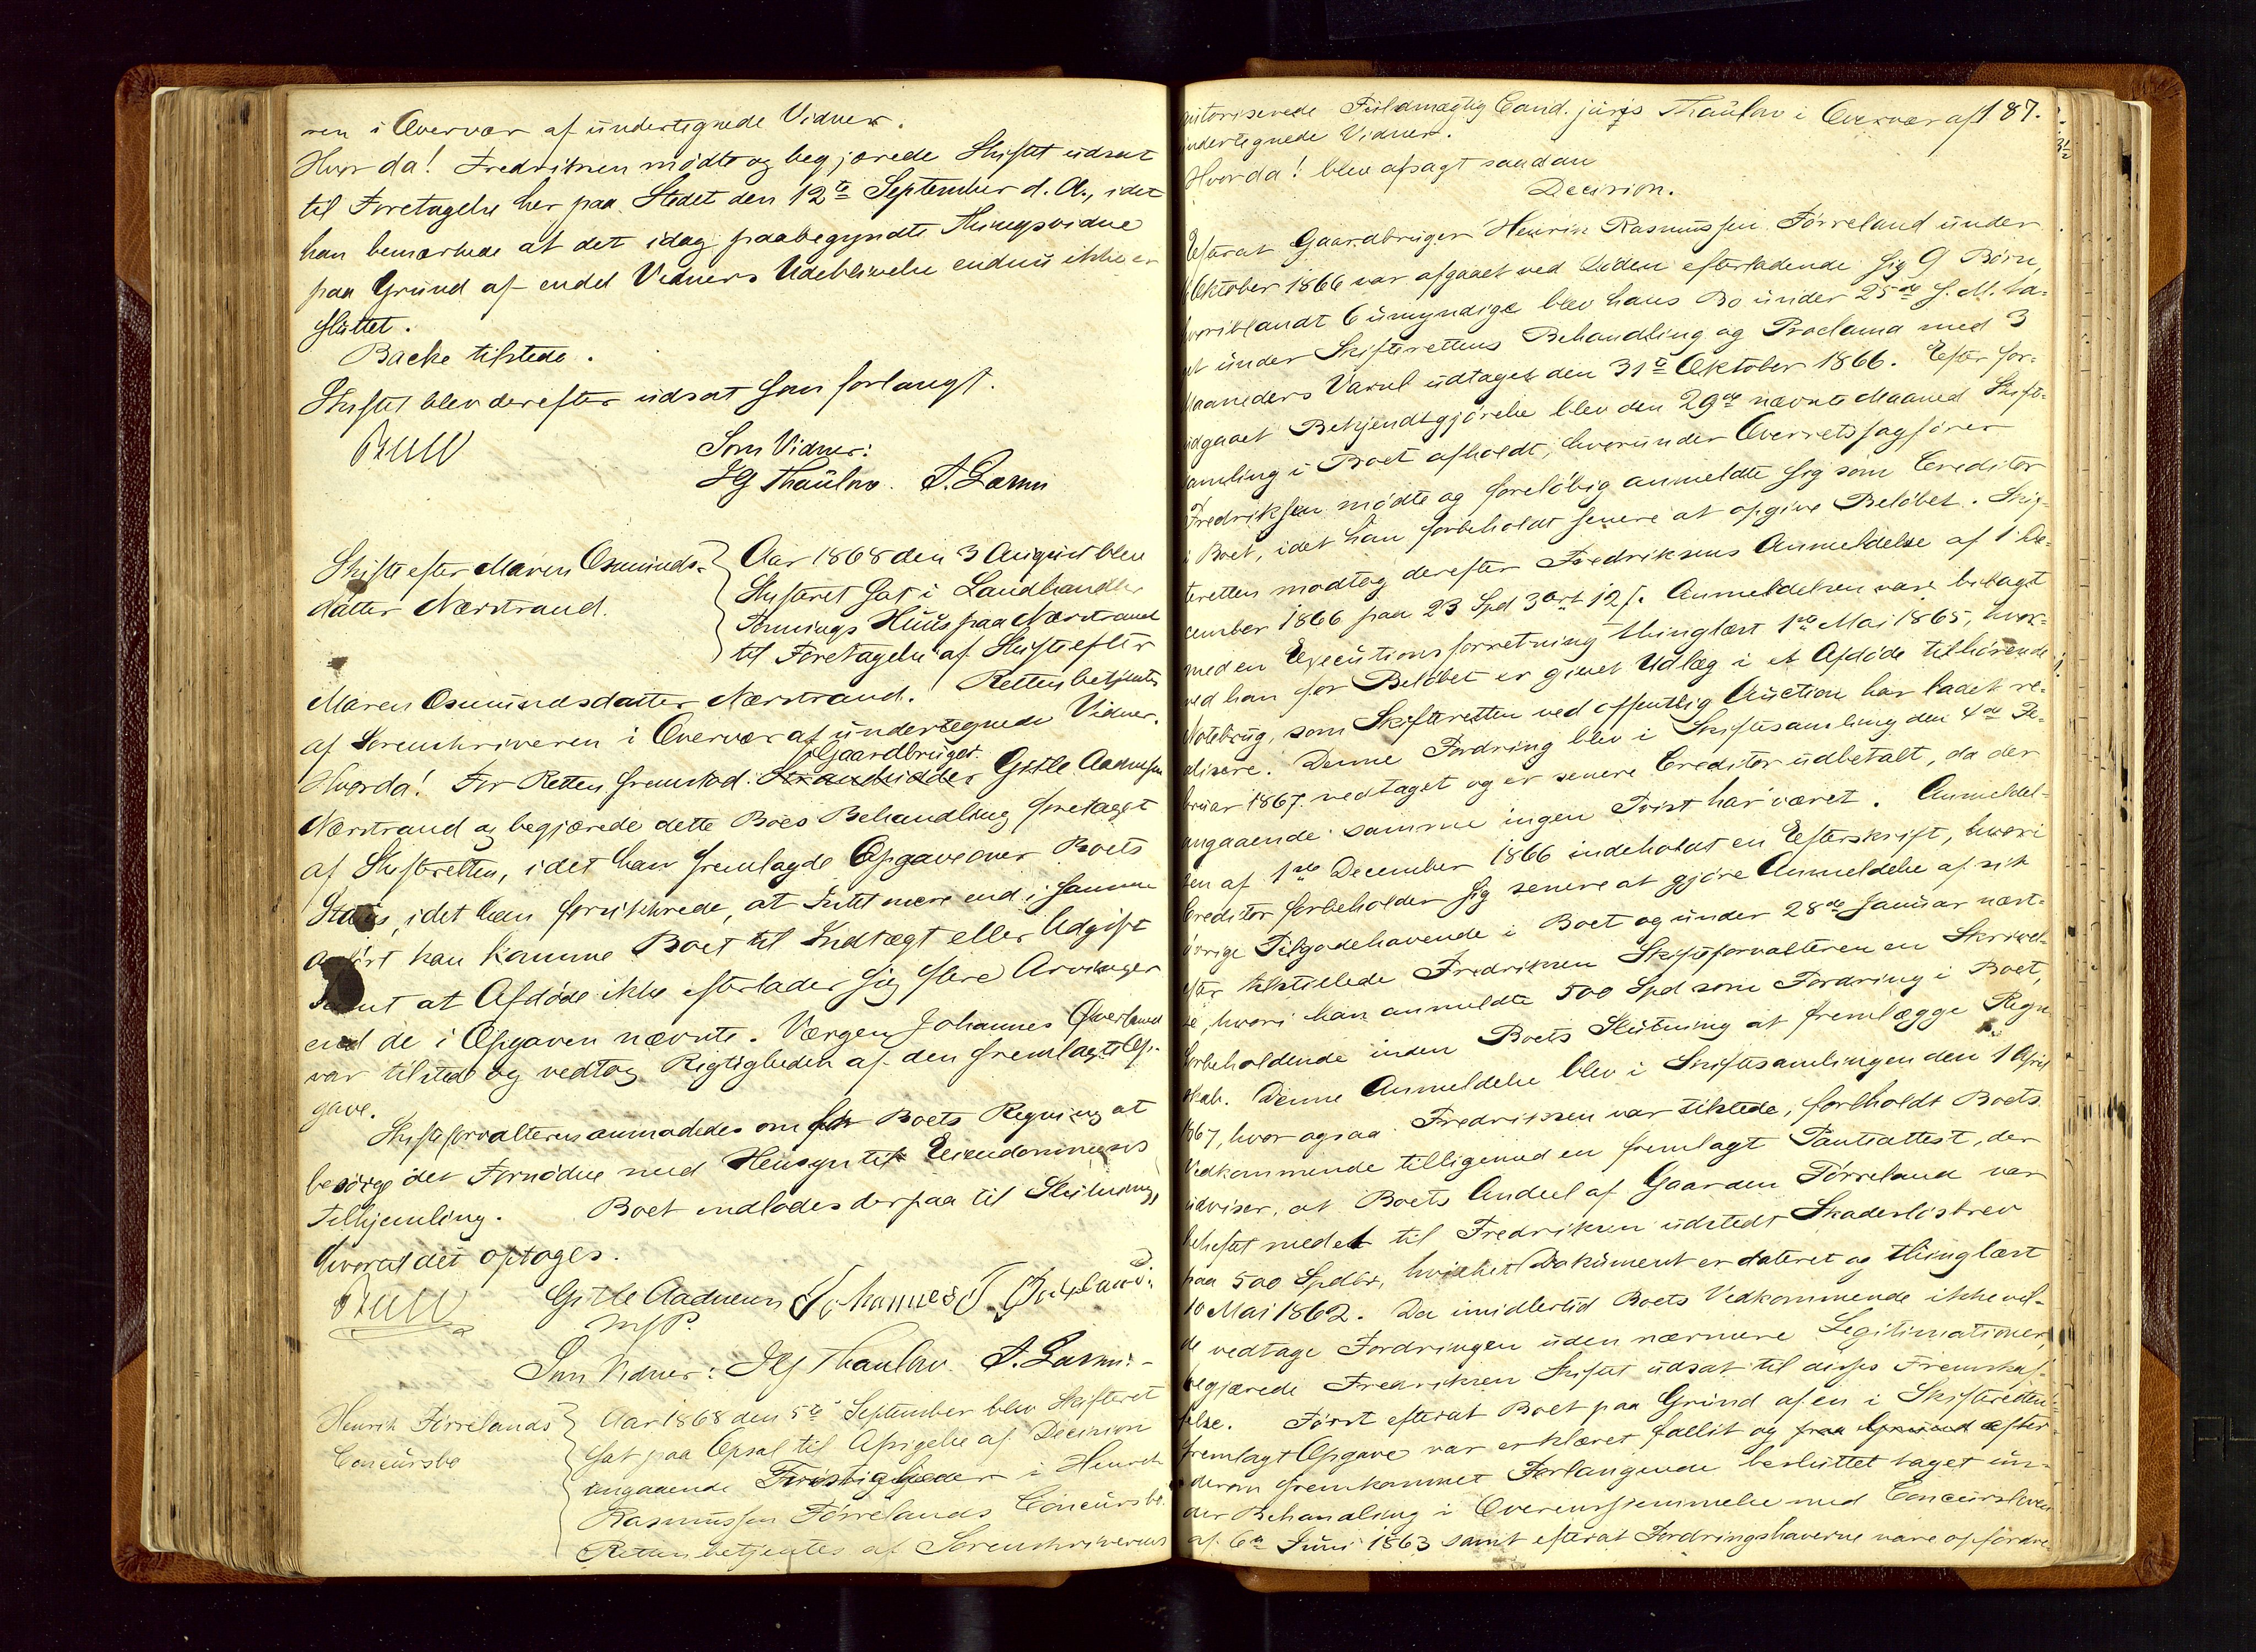 ren i Overvær af undertegnede Vidner.
Hvorda! Fredriksen mødte og begjærede Skiftet udsat
til Foretagelse her paa Stedet den 12te September d. A., idet
han bemærkede at det idag paabegyndte Thingsvidne
paa Grund af endel Vidners Udeblivelse endnu ikke er
sluttet.
Backe tilstede.
Skiftet blev derefter udsat som forlangt.
Bull
Som Vidner:
JG Thaulow. A. Larsen
Skifte efter Maren Osmunds-
datter Nærstrand.
Aar 1868 den 3 August blev
Skifteret sat i Landhandler
Huus paa Nærstrand
til Foretagelse af Skifte efter
Maren Osmundsdatter Nærstrand. Retten betjentes
af Sorenskriveren i Overvær af undertegnede Vidner.
Gaardbruger
Hvorda! For Retten fremstod Strandsidder Gitle Aadnesen
Nærstrand og begjærede dette Boes Behandling foretaget
af Skifteretten, idet han fremlagde Opgave over Boets
Status, idet han forsikkrede, at Intet mere end i samme
anført kan komme Boet til Indtægt eller Udgift
samt at Afdøde ikke efterlader sig flere Arvinger
end de i Opgaven nævnte. Værgen Johannes
var tilstede og vedtog Rigtigheden af den fremlagte Op-
gave.
Skifteforvalteren anmodedes om for Boets Regning at
besørge det Fornødne med Hensyn til Eiendommens
Tilhjemling. Boet indlodes derpaa til Slutning,
hvortil det optoges.
Bull Gitle Aadnesen Johannes T.
m/P.
Som Vidner: JG Thaulow A. Larsen
Henrik Førrelands
Concursbo
Aar 1868 den 5te September blev Skifteret
sat paa Opsal til Afsigelse af Decision
angaaende Tvistigheder i Henrik
Rasmussen Førrelands Concursbo.
Retten betjentes af Sorenskriverens
187.
autoriserede Fuldmægtig Cand. juris Thaulow i Overvær af
undertegnede Vidner.
Hvorda! blev afsagt saadan
Decision.
Efterat Gaardbruger Henrik Rasmussen Førreland under
Oktober 1866 var afgaaet ved Døden efterladende sig 9 Børn,
hvoriblandt 6 umyndige blev hans Bo under 25de s. M. ta-
get under Skifterettens Behandling og Proclama med 3
Maaneders Varsel udtaget den 31te Oktober 1866. Efter for-
udgaaet Bekjendtgjørelse blev den 29de nævnte Maaned Skifte-
samling i Boet afholdt, hvorunder Overretssagfører
Fredriksen mødte og foreløbig anmeldte sig som Creditor
i Boet, idet han forbeholdt senere at opgive Beløbet. Skif-
teretten modtog derefter Fredriksens Anmeldelse af 1 De-
cember 1866 paa 23 Spd 3 Ort 12 s. Anmeldelsen var bilagt
med en Executionsforretning thinglæst 1ste Mai 1865, hvor-
ved han for Beløbet er givet Udlæg i et Afdøde tilhørende
Notebrug, som Skifteretten ved offentlig Auction har ladet re-
alisere. Denne Fordring blev i Skiftesamling den 4de Fe-
bruar 1867 vedtaget og er senere Creditor udbetalt, da der
angaaende samme ingen Tvist har været. Anmeldel-
sen af 1ste December 1866 indeholdt en Efterskrift, hvori
Creditor forbeholder sig senere at gjøre Anmeldelse af sit
øvrige Tilgodehavende i Boet og under 28de Januar næst-
efter tilstillede Fredriksen Skifteforvalteren en Skrivel-
se, hvori han anmeldte 500 Spd som Fordring i Boet,
forbeholdende inden Boets Slutning at fremlægge Regn
skab. Denne Anmeldelse blev i Skiftesamlingen den 1 April
1867, hvor ogsaa Fredriksen var tilstede, forholdt Boets
Vedkommende tilligemed en fremlagt Panteattest, der
udviser, at Boets Andeel af Gaarden Førreland var
beheftet med et til Fredriksen udstedt Skadesløsbrev
paa 500 Spdlr, hvilket Dokument er dateret og thinglæst
10 Mai 1862. Da imidlertid Boets Vedkommende ikke vil-
de vedtage Fordringen uden nærmere Legitimationer,
begjærede Fredriksen Skiftet udsat til disses Fremskaf-
felse. Først efterat Boet paa Grund af en i Skifteretten
fremlagt Opgave var erklæret fallit og paa Grund efter
derom fremkommet Forlangende besluttet taget un-
der Behandling i Overensstemmelse med Concursloven
af 6te Juni 1863 samt efterat Fordringshaverne vare opfordre-